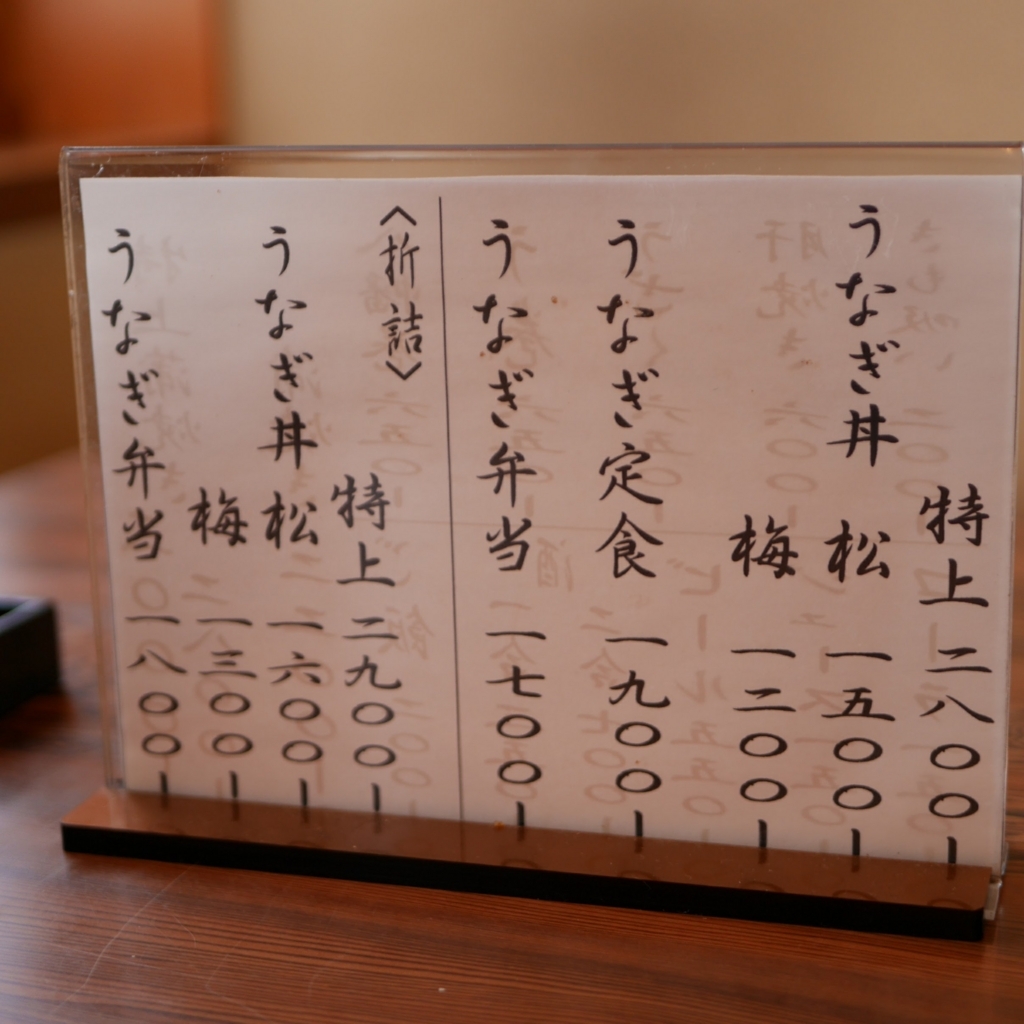 特上 二八〇〇ー
うなぎ丼 松 一五〇〇ー
梅 一二〇〇ー
うなぎ定食 一九〇〇ー
うなぎ弁当 一七〇〇ー
〈折詰〉
特上 二九〇〇ー
うなぎ丼 松 一六〇〇ー
梅 一三〇〇ー
うなぎ弁当 一八〇〇ー